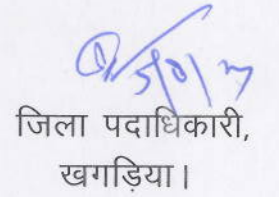 जिला पदाधिकारी,
खगड़िया।